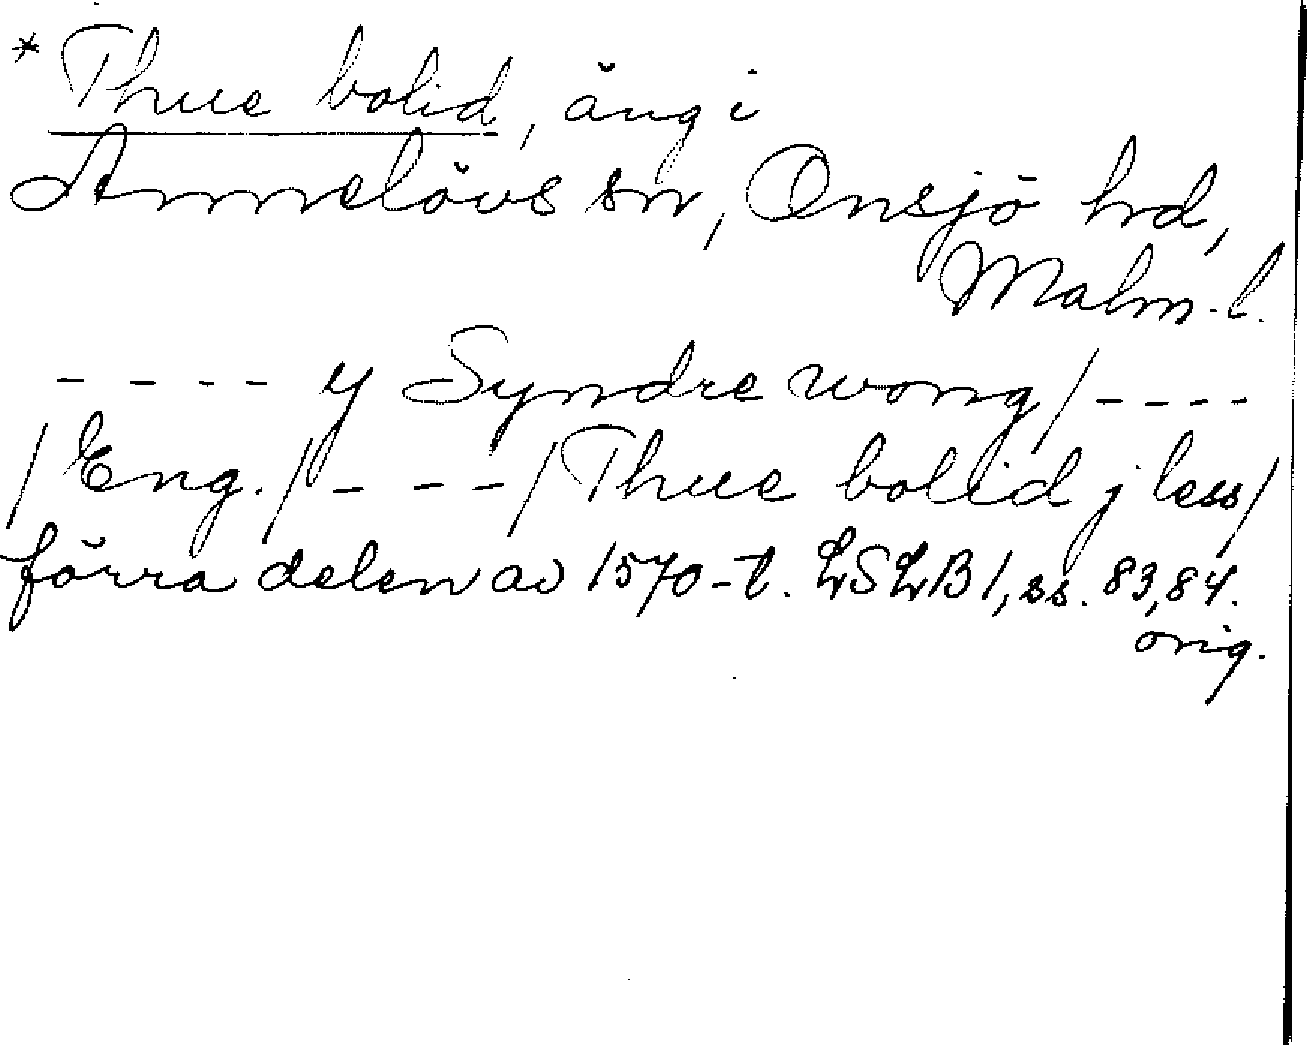 * Thue bolid, äng i
Annelövs sn, Onsjö hd,
Malm. l.
---- y Syndre wong/----
/Eng./---/Thue bolid j less/
förra delen av 1570-t. LSLB 1, ss. 83,84.
orig.